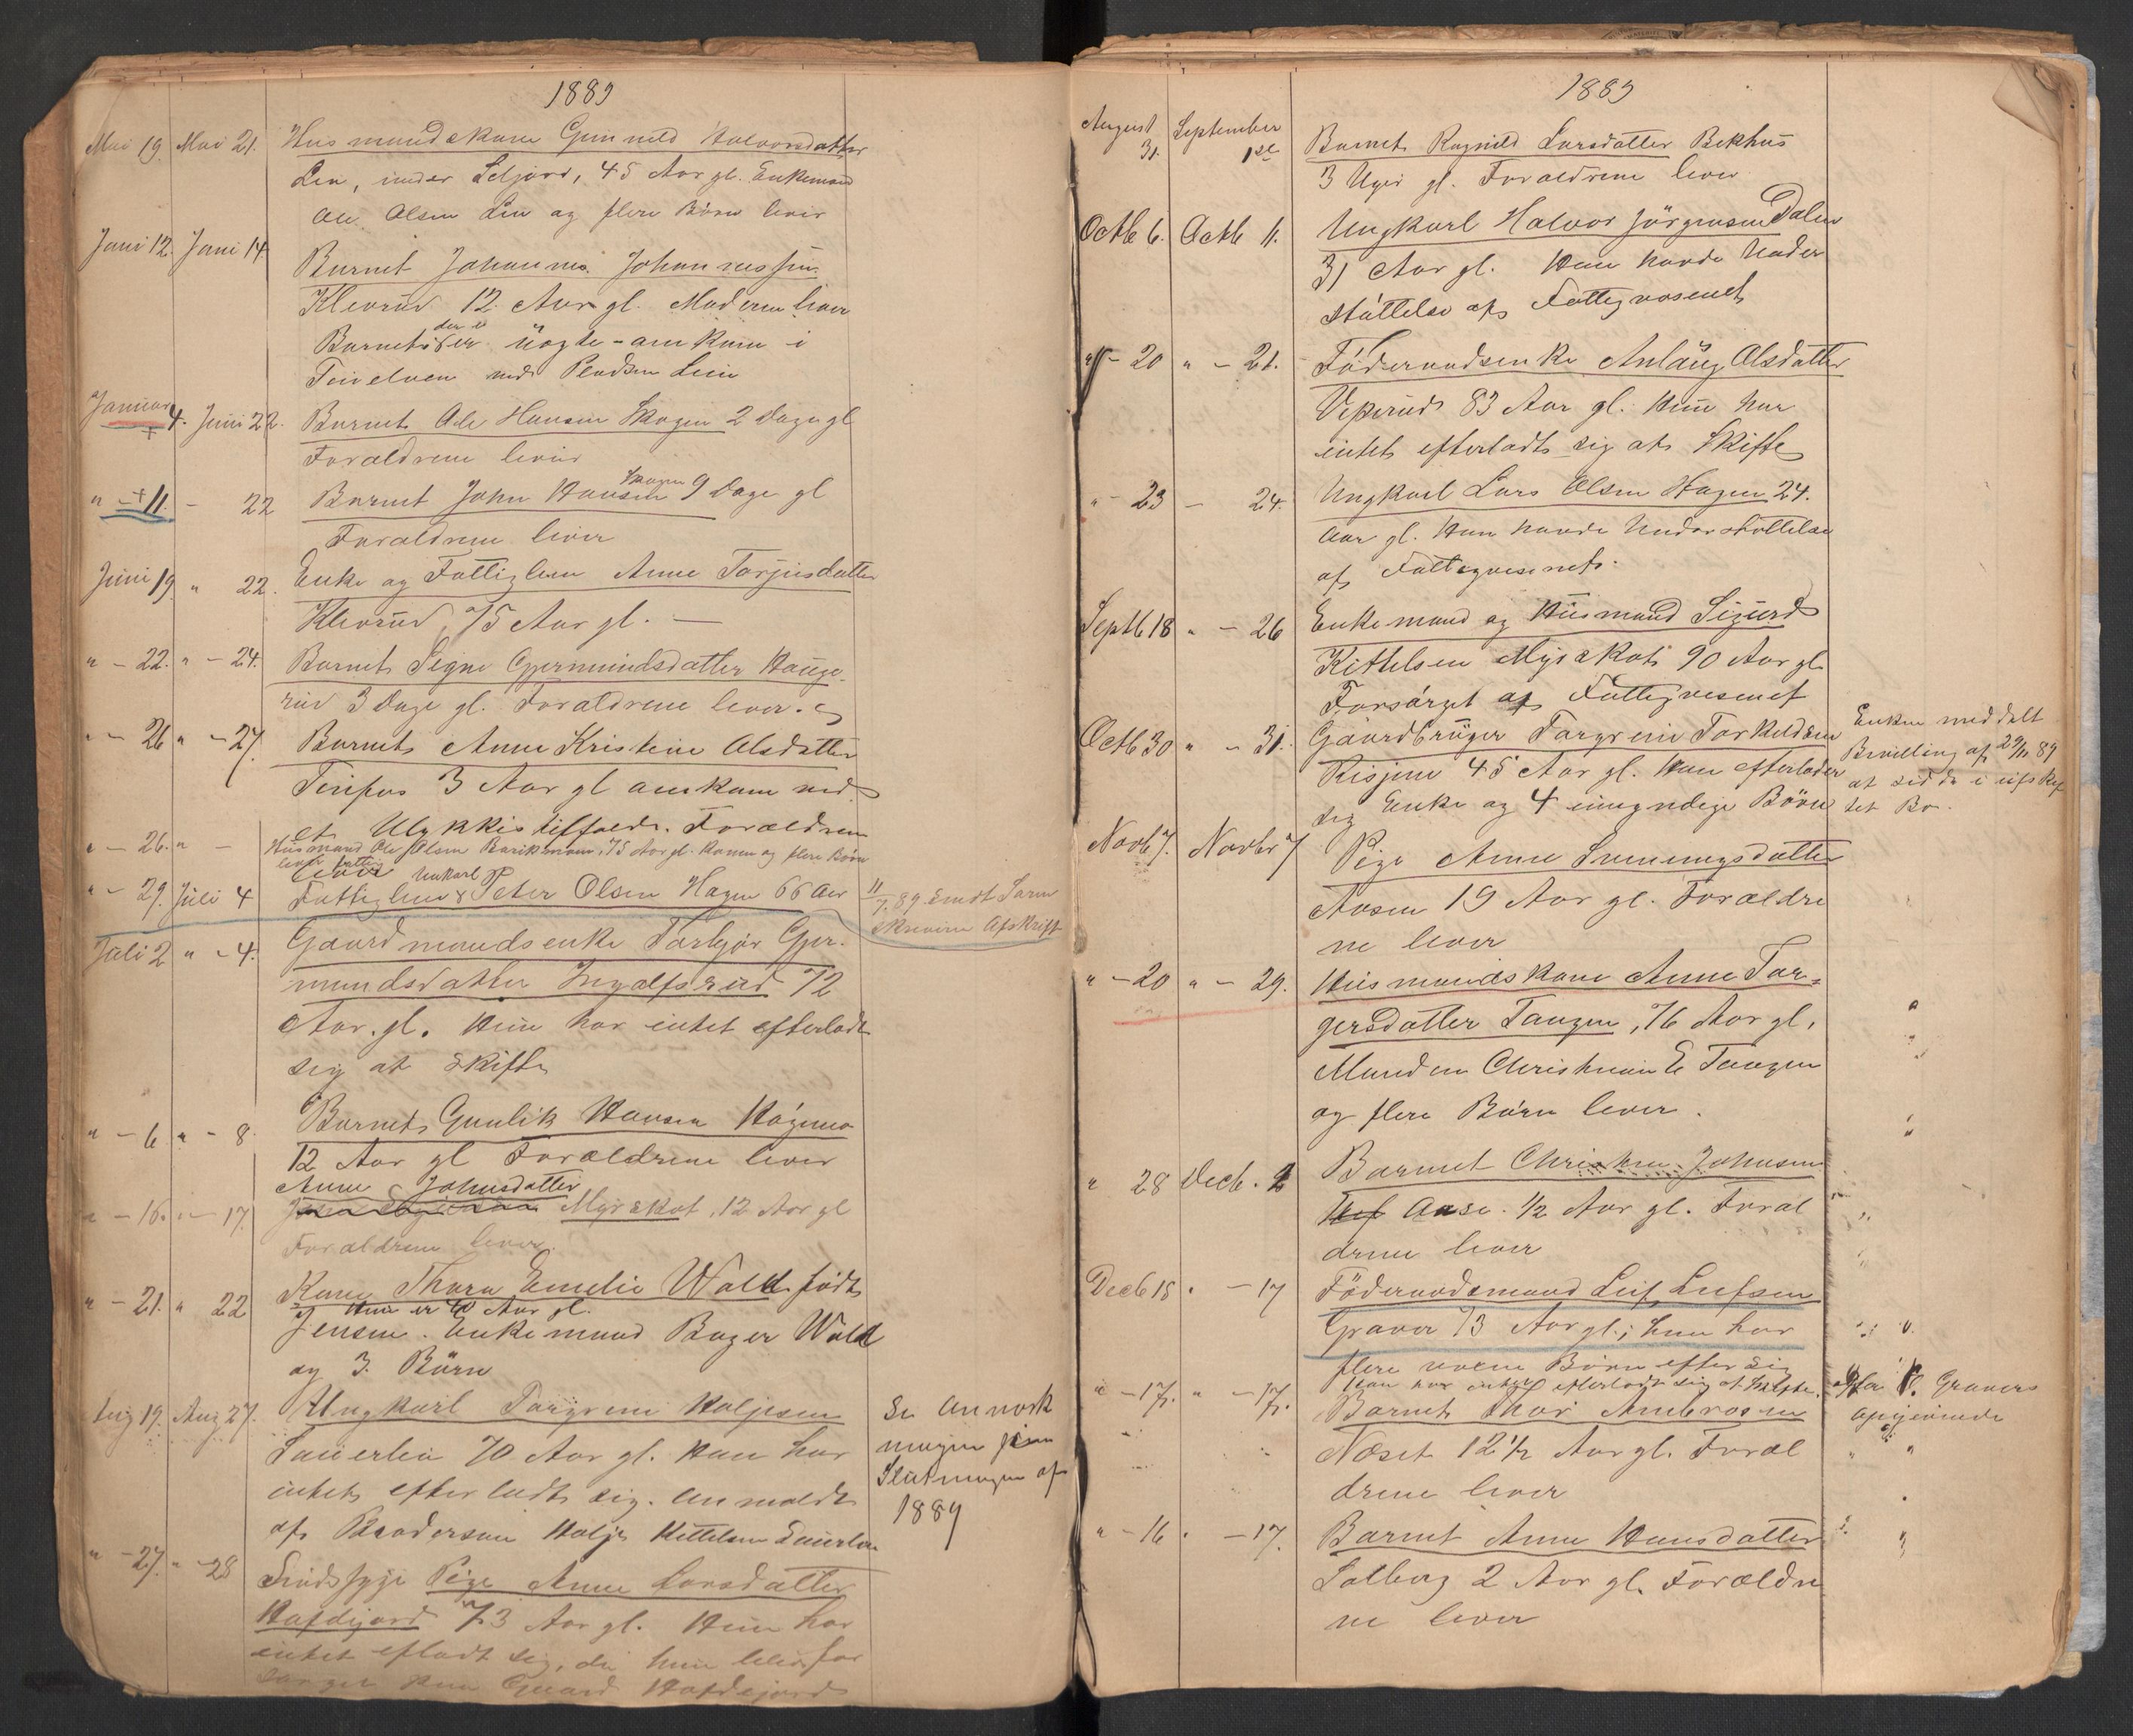 1889
Mai 19. Mai 21. Husmandskone Gunnild Halvorsdatter
Lia, under Seljord, 45 Aar gl. Enkemand
Ole Olsen Lia og flere Börn lever
Juni 12. Juni 14. Barnet Johannes Johannessen
Klevrud 12 Aar gl. Moderen lever
Barnet der er
ned
Januar 4. Juni 22. Barnet Ole Hansen Skogen 2 Dage gl
Forældrene lever
" - 11. - 22 Barnet John Hansen Skogen 9 Dage gl
Forældrene lever
Juni 19 " 22. Enke og Fattiglem Anne Torjusdatter
Klevrud, 75 Aar gl. —
" - 22. " - 24. Barnet Signe Gjermundsdatter Hauge-
rud 3 Dage gl. Forældrene lever.
" - 26 " - 27. Barnet Anne Kristine Olsdatter
3 Aar gl omkom ved
et Ulykkestilfælde. Forældrene
lever
" - 26. " - Husmand Ole Olsen 75 Aar gl. Konen og flere Börn
lever fattig
" - 29. Juli 4 Fattiglem Unkarl Peter Olsen Hagen 66 Aar
11/7 89 sendt Soren
skriveren Afskrift
Juli 2 " - 4. Gaardmandsenke Torbjör Gjer-
mundsdatter Ingolfsrud 72
Aar. gl. Hun har intet efterladt
sig at Skifte
" - 6 " - 8. Barnet Gunlik Hansen
12 Aar gl Forældrene lever
" - 16. " - 17. Anne Johnsdatter Myrskot, 12 Aar gl
Forældrene lever.
" - 21. " 22 Kone Thora Emelie Wold född
Hun er 40 Aar gl.
Jensen. Enkemand Wold
og 3. Börn
Aug 19. Aug 27. Ungkarl Targrim Haljesen
Sauerlia 70 Aar gl. Han har
intet efterladt sig. Anmeldt
af Brodersön Halje Kittelsen Sauerlia
Se Anmærk
ningen
Slutningen af
1889
" - 27. " - 28 Sindssyge Pige Anne Larsdatter
73 Aar gl. Hun har
intet efladt sig, da hun blev for
Gaard
1889
August 31. September 1ste Barnet Ragnild Larsdatter Bekhus
3 Uger gl. Forældrene lever
Octb 6. Octb 11. Ungkarl Halvor Jörgensen Dalen
31 Aar gl. Han havde Under
stöttelse af Fattigvæsenet
" - 20 " - 21. Föderaadsenke Anlaug Olsdatter
83 Aar gl. Hun har
intet efterladt sig at Skifte
" - 23 - 24. Ungkarl Lars Olsen Hagen 24.
Aar gl. Han havde Understöttelse
af Fattigvæsenet.
Septb 18 " - 26 Enkemand og Husmand Sigurd
Kittelsen Myrskot 90 Aar gl
Forsörget af Fattigvæsenet
Octb 30 " - 31. Gaardbruger Targrim Torkildsen
45 Aar gl. Han efterlader
sig Enke og 4 umyndige Börn
Enken meddelt
Bevilling af 29/11 89
at sidde i uskif
tet Bo.
Novb 7. Novbr 7 Pige Anne Svenungsdatter
Aasen 19 Aar gl. Forældre
ne lever
" - 20 " - 29. Husmandskone Anne Tor-
gersdatter Tangen, 76 Aar gl,
Manden Christian E Tangen
og flere Börn lever.
" 28 Decb. 2 Barnet Christen Johnsen
Aase. 1/2 Aar gl. Foræl
drene lever
Decb 15 " - 17 Föderaadsmand Leif Leifsen
Graver 73 Aar gl.; han har
flere voxne Börn efter sig
Han har intet efterladt sig at Skifte.
Gravers
Opgivende
" - 17. " - 17. Barnet Thor Ambrosen
Næset 12 1/2 Aar gl. Foræl
drene lever
" - 16 " - 17. Barnet Anne Hansdatter
Solberg 2 Aar gl. Forældre
ne lever